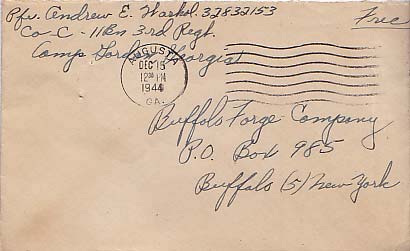 Pfc. Andrew E. Warhol. 32832153
Free
Co-C - 11Bn 3rd Regt.
Camp Gordon Georgia
AUGUSTA
DEC 15
1944
GA.
Buffalo Forge Company
P.O. Box 985
Buffalo (5) New York